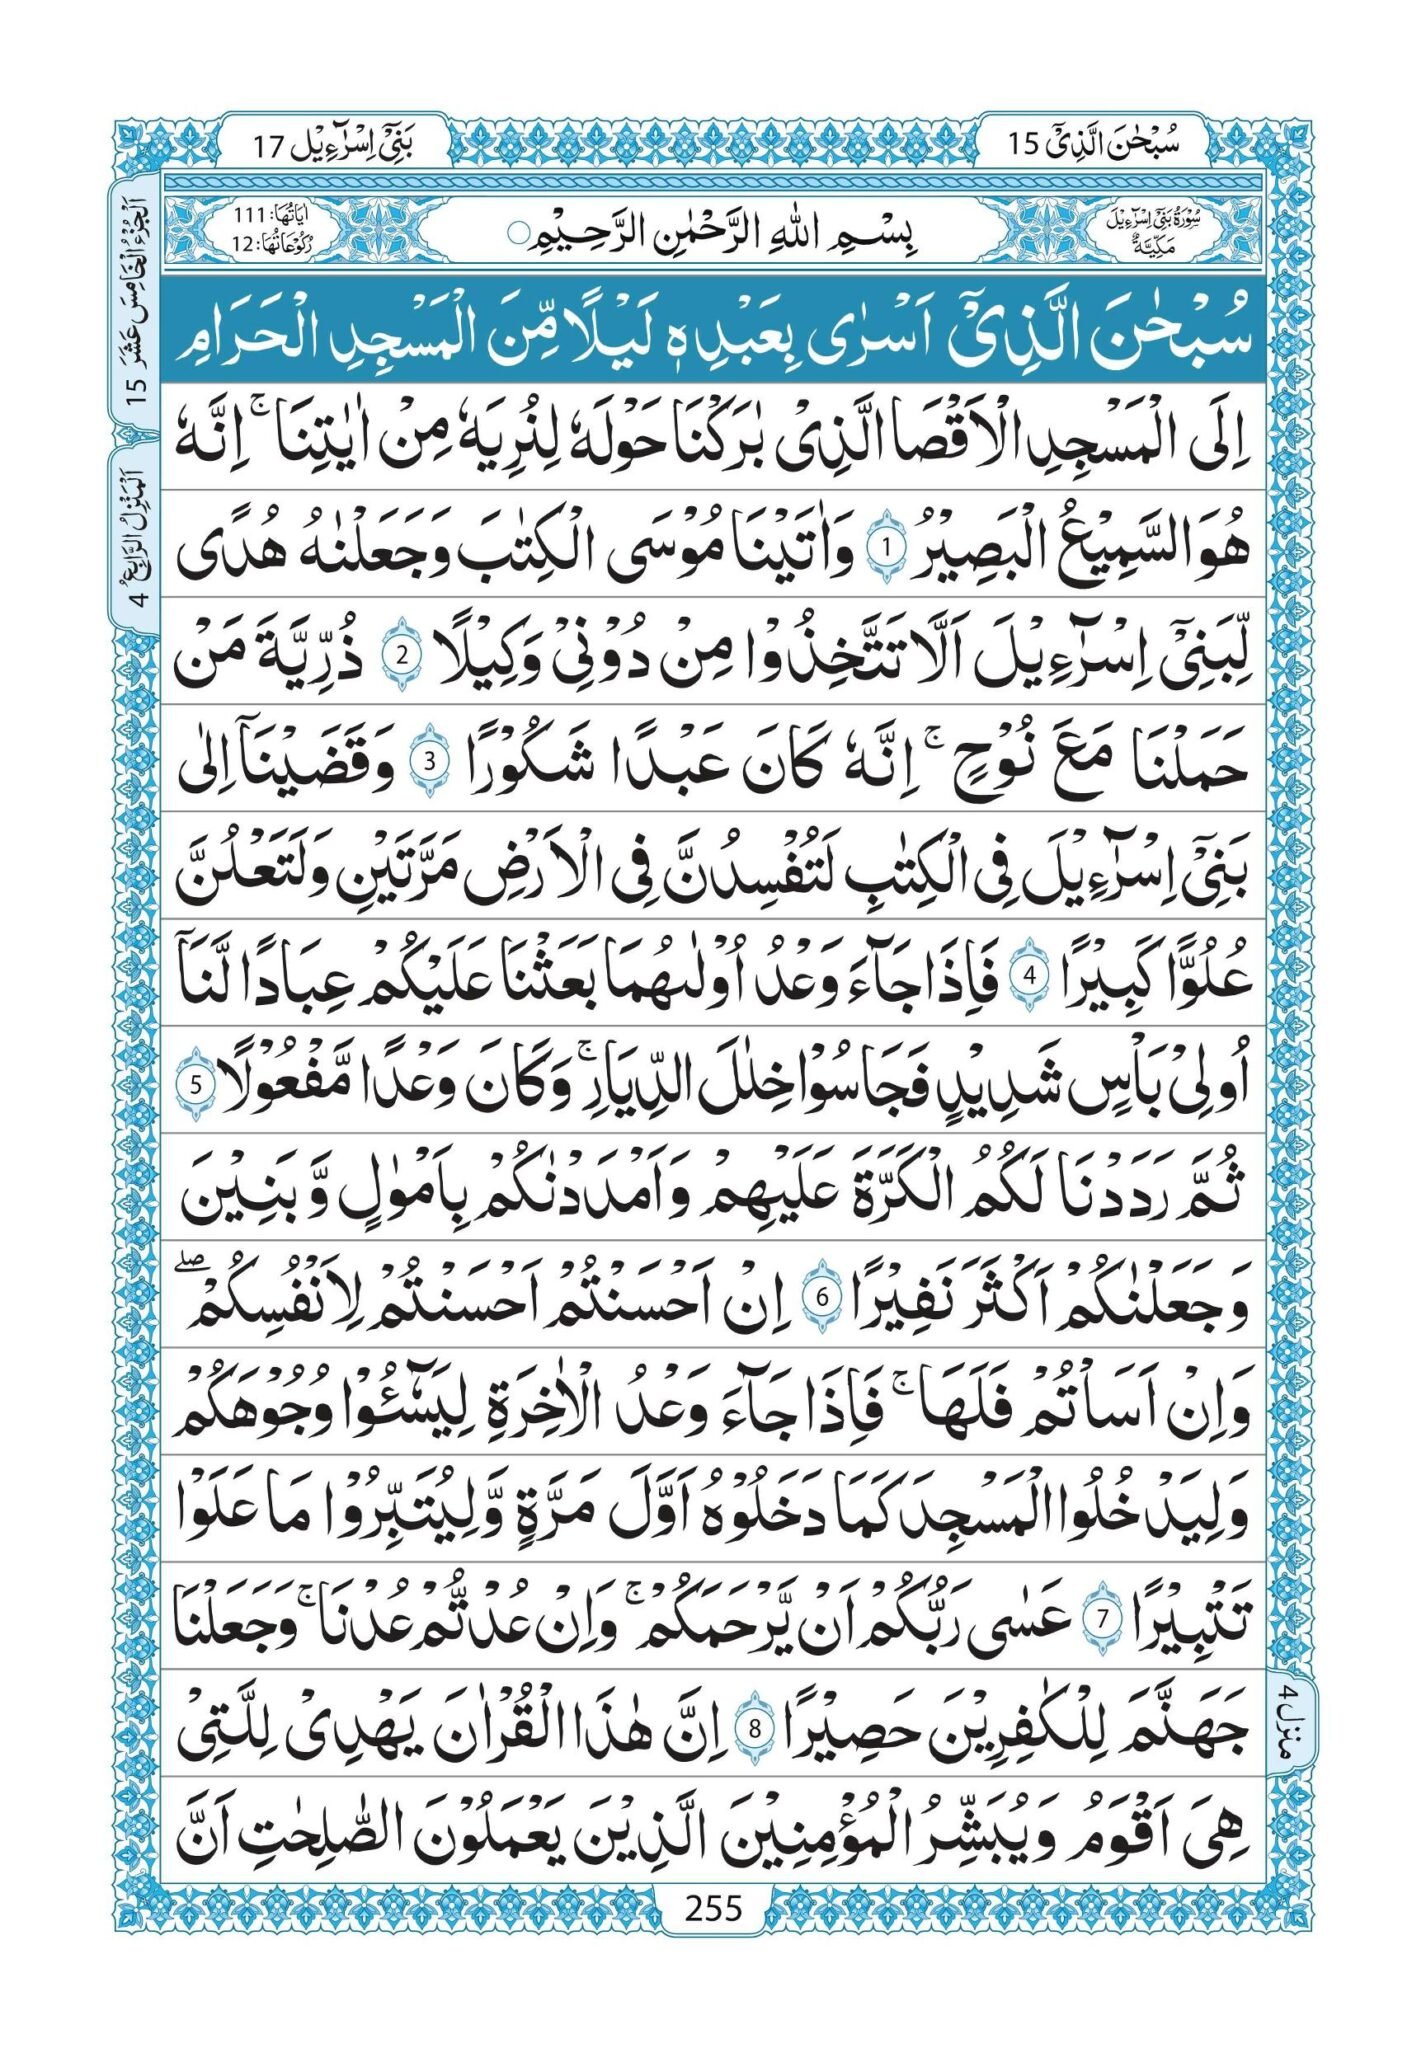 سُبْحٰنَ الَّذِیْۤ 15
بَنِیْۤ اِسْرَآءِیْل 17
سُوْرَةُ بَنِیْۤ اِسْرَآءِیْلَ مَکِّیَّةٌ
بِسْمِ اللّٰهِ الرَّحْمٰنِ الرَّحِیْمِ
اٰیَاتُهَا: 111
رُکُوْعَاتُهَا: 12
سُبْحٰنَ الَّذِیْۤ اَسْرٰی بِعَبْدِهٖ لَیْلًا مِّنَ الْمَسْجِدِ الْحَرَامِ
اِلَی الْمَسْجِدِ الْاَقْصَا الَّذِیْ بٰرَکْنَا حَوْلَهٗ لِنُرِیَهٗ مِنْ اٰیٰتِنَا ؕ اِنَّهٗ
هُوَ السَّمِیْعُ الْبَصِیْرُ 1 وَاٰتَیْنَا مُوْسَی الْکِتٰبَ وَجَعَلْنٰهُ هُدًی
لِّبَنِیْۤ اِسْرَآءِیْلَ اَلَّا تَتَّخِذُوْا مِنْ دُوْنِیْ وَکِیْلًا 2 ذُرِّیَّةَ مَنْ
حَمَلْنَا مَعَ نُوْحٍ ۚ اِنَّهٗ کَانَ عَبْدًا شَکُوْرًا 3 وَقَضَیْنَاۤ اِلٰی
بَنِیْۤ اِسْرَآءِیْلَ فِی الْکِتٰبِ لَتُفْسِدُنَّ فِی الْاَرْضِ مَرَّتَیْنِ وَلَتَعْلُنَّ
عُلُوًّا کَبِیْرًا 4 فَاِذَا جَآءَ وَعْدُ اُوْلٰىهُمَا بَعَثْنَا عَلَیْکُمْ عِبَادًا لَّنَاۤ
اُولِیْ بَاْسٍ شَدِیْدٍ فَجَاسُوْا خِلٰلَ الدِّیَارِ ۚ وَکَانَ وَعْدًا مَّفْعُوْلًا 5
ثُمَّ رَدَدْنَا لَکُمُ الْکَرَّةَ عَلَیْهِمْ وَاَمْدَدْنٰکُمْ بِاَمْوٰلٍ وَّبَنِیْنَ
وَجَعَلْنٰکُمْ اَکْثَرَ نَفِیْرًا 6 اِنْ اَحْسَنْتُمْ اَحْسَنْتُمْ لِاَنْفُسِکُمْ ۖ
وَاِنْ اَسَاْتُمْ فَلَهَا ۚ فَاِذَا جَآءَ وَعْدُ الْاٰخِرَةِ لِیَسُـْٓٔوْا وُجُوْهَکُمْ
وَلِیَدْخُلُوا الْمَسْجِدَ کَمَا دَخَلُوْهُ اَوَّلَ مَرَّةٍ وَّلِیُتَبِّرُوْا مَا عَلَوْا
تَتْبِیْرًا 7 عَسٰی رَبُّکُمْ اَنْ یَّرْحَمَکُمْ ۚ وَاِنْ عُدْتُّمْ عُدْنَا ۚ وَجَعَلْنَا
جَهَنَّمَ لِلْکٰفِرِیْنَ حَصِیْرًا 8 اِنَّ هٰذَا الْقُرْاٰنَ یَهْدِیْ لِلَّتِیْ
هِیَ اَقْوَمُ وَیُبَشِّرُ الْمُؤْمِنِیْنَ الَّذِیْنَ یَعْمَلُوْنَ الصّٰلِحٰتِ اَنَّ
اَلْجُزْءُ الْخَامِسَ عَشَرَ 15
اَلْمَنْزِلُ الرَّابِعُ 4
منزل 4
255